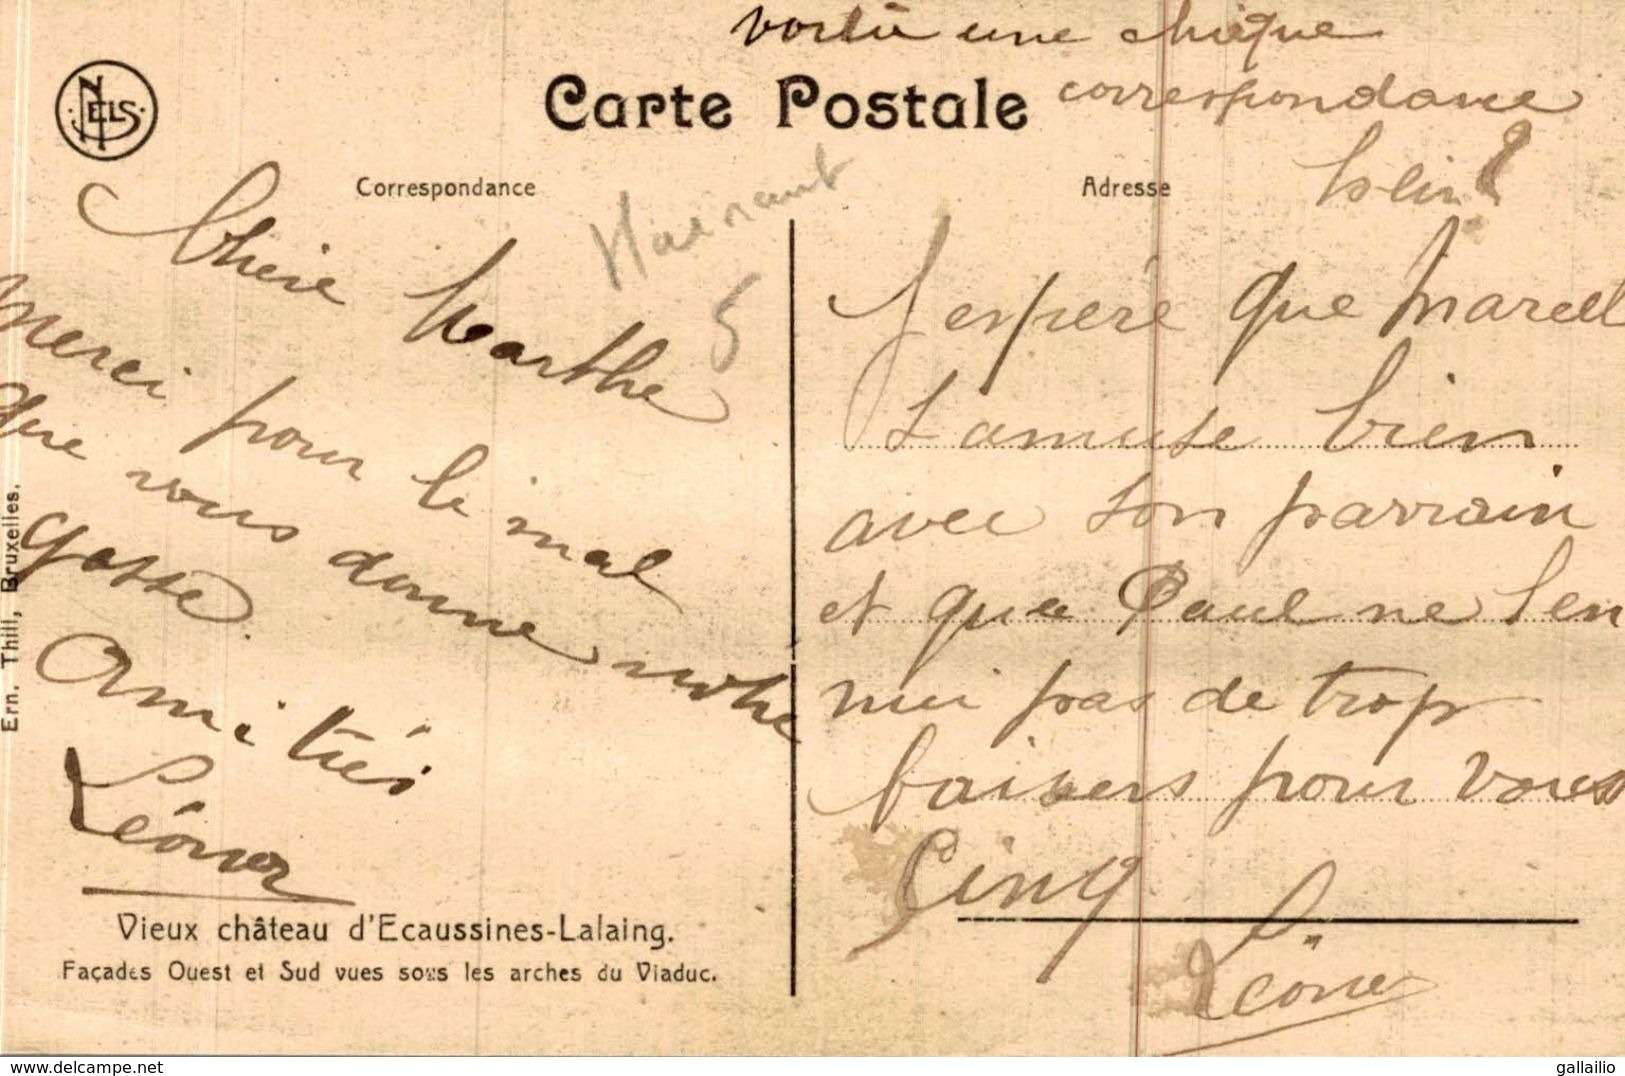 voilà une chique
correspondance
Carte Postale
NELS
Correspondance
Adresse
Hainaut
5
Chère Marthe
Merci pour le mal
que vous donne notre
gosse.
Amitiés
Léonor
J espère que Marcel
s amuse bien
avec son parrain
et que Paul ne s'en
nui pas de trop
baisers pour vous
cinq
Léonor
Vieux château d'Ecaussines-Lalaing.
Façades Ouest et Sud vues sous les arches du Viaduc.
Ern. Thill, Bruxelles.
delcampe.net
gallailio